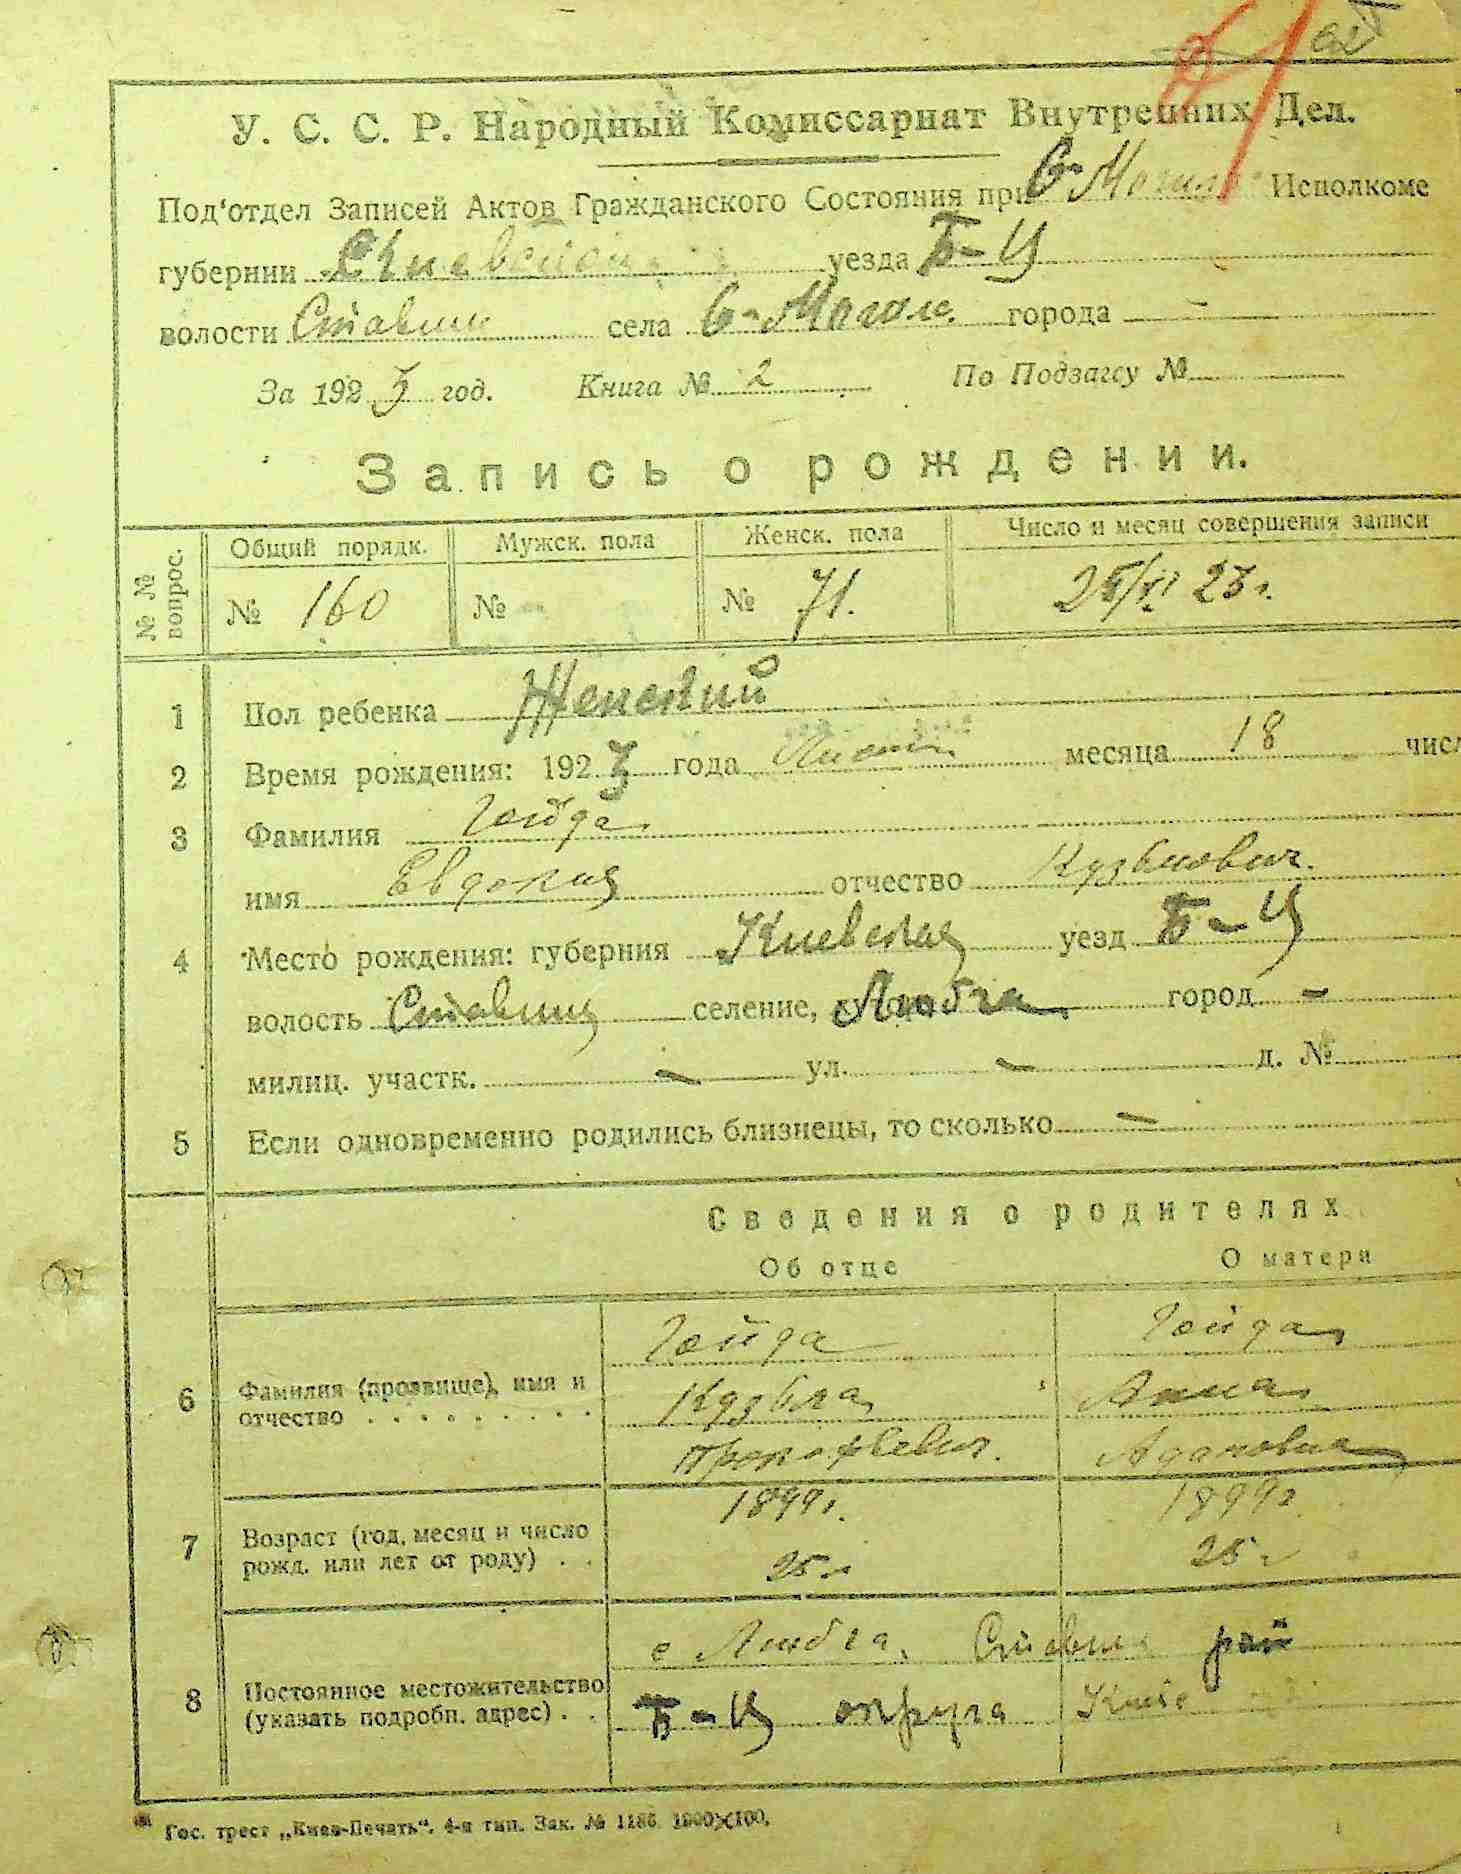 У. С. С. Р. Народный Комиссариат Внутренних Дел.
Под‘отдел Записей Актов Гражданского Состояния при Исполкоме
губернии уезда Б-Ц
волости Ставищ села города -
За 1923 год. Книга № 2 По Подзагсу №
Запись о рождении.
№№ вопрос.
Общий порядк. Мужск. пола Женск. пола Число и месяц совершения записи
№ 160 № - № 71. 23 г.
1 Пол ребенка Женский
2 Время рождения: 1923 года месяца 18 числ
3 Фамилия Гайда
имя Евдокия отчество Кузьмович.
4 Место рождения: губерния Киевская уезд Б-Ц
волость селение, город -
милиц. участк. - ул. - д. №
5 Если одновременно родились близнецы, то сколько -
Сведения о родителях
Об отце О матери
6 Фамилия (прозвище), имя и
отчество
Гайда Гайда
Кузьма Анна
Прокофьевич.
7 Возраст (год, месяц и число
рожд. или лет от роду)
1899г. 1899г
25 25
8 Постоянное местожительство
(указать подробн. адрес)
с рай
Б-Ц округа
Гос. трест „Киев-Печать“. 4-я тип. Зак. № 1186 1000×100.